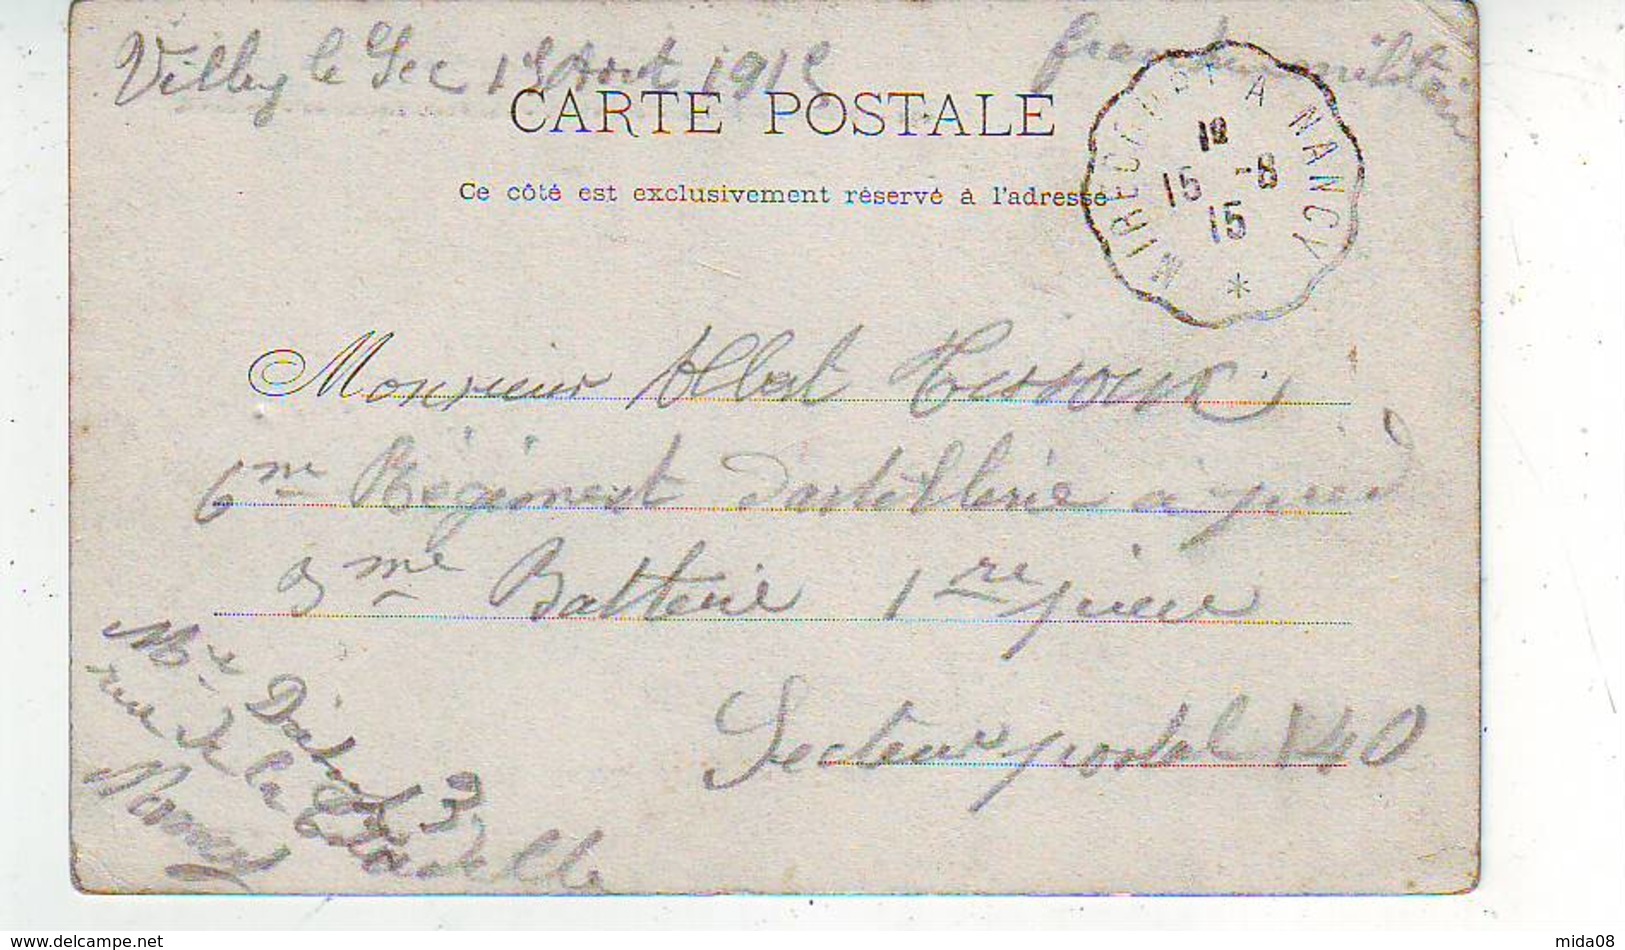 Villey le Sec 15 Aout 1915
franchise militaire
CARTE POSTALE
Ce côté est exclusivement réservé à l'adresse
MIRECOURT A NANCY
18
15 -8
15
*
Monsieur Albert
6me Régiment d'artillerie à pied
3me Batterie 1re pièce
Secteur postal 140
3
rue de la Citadelle
Nancy
delcampe.net
mida08